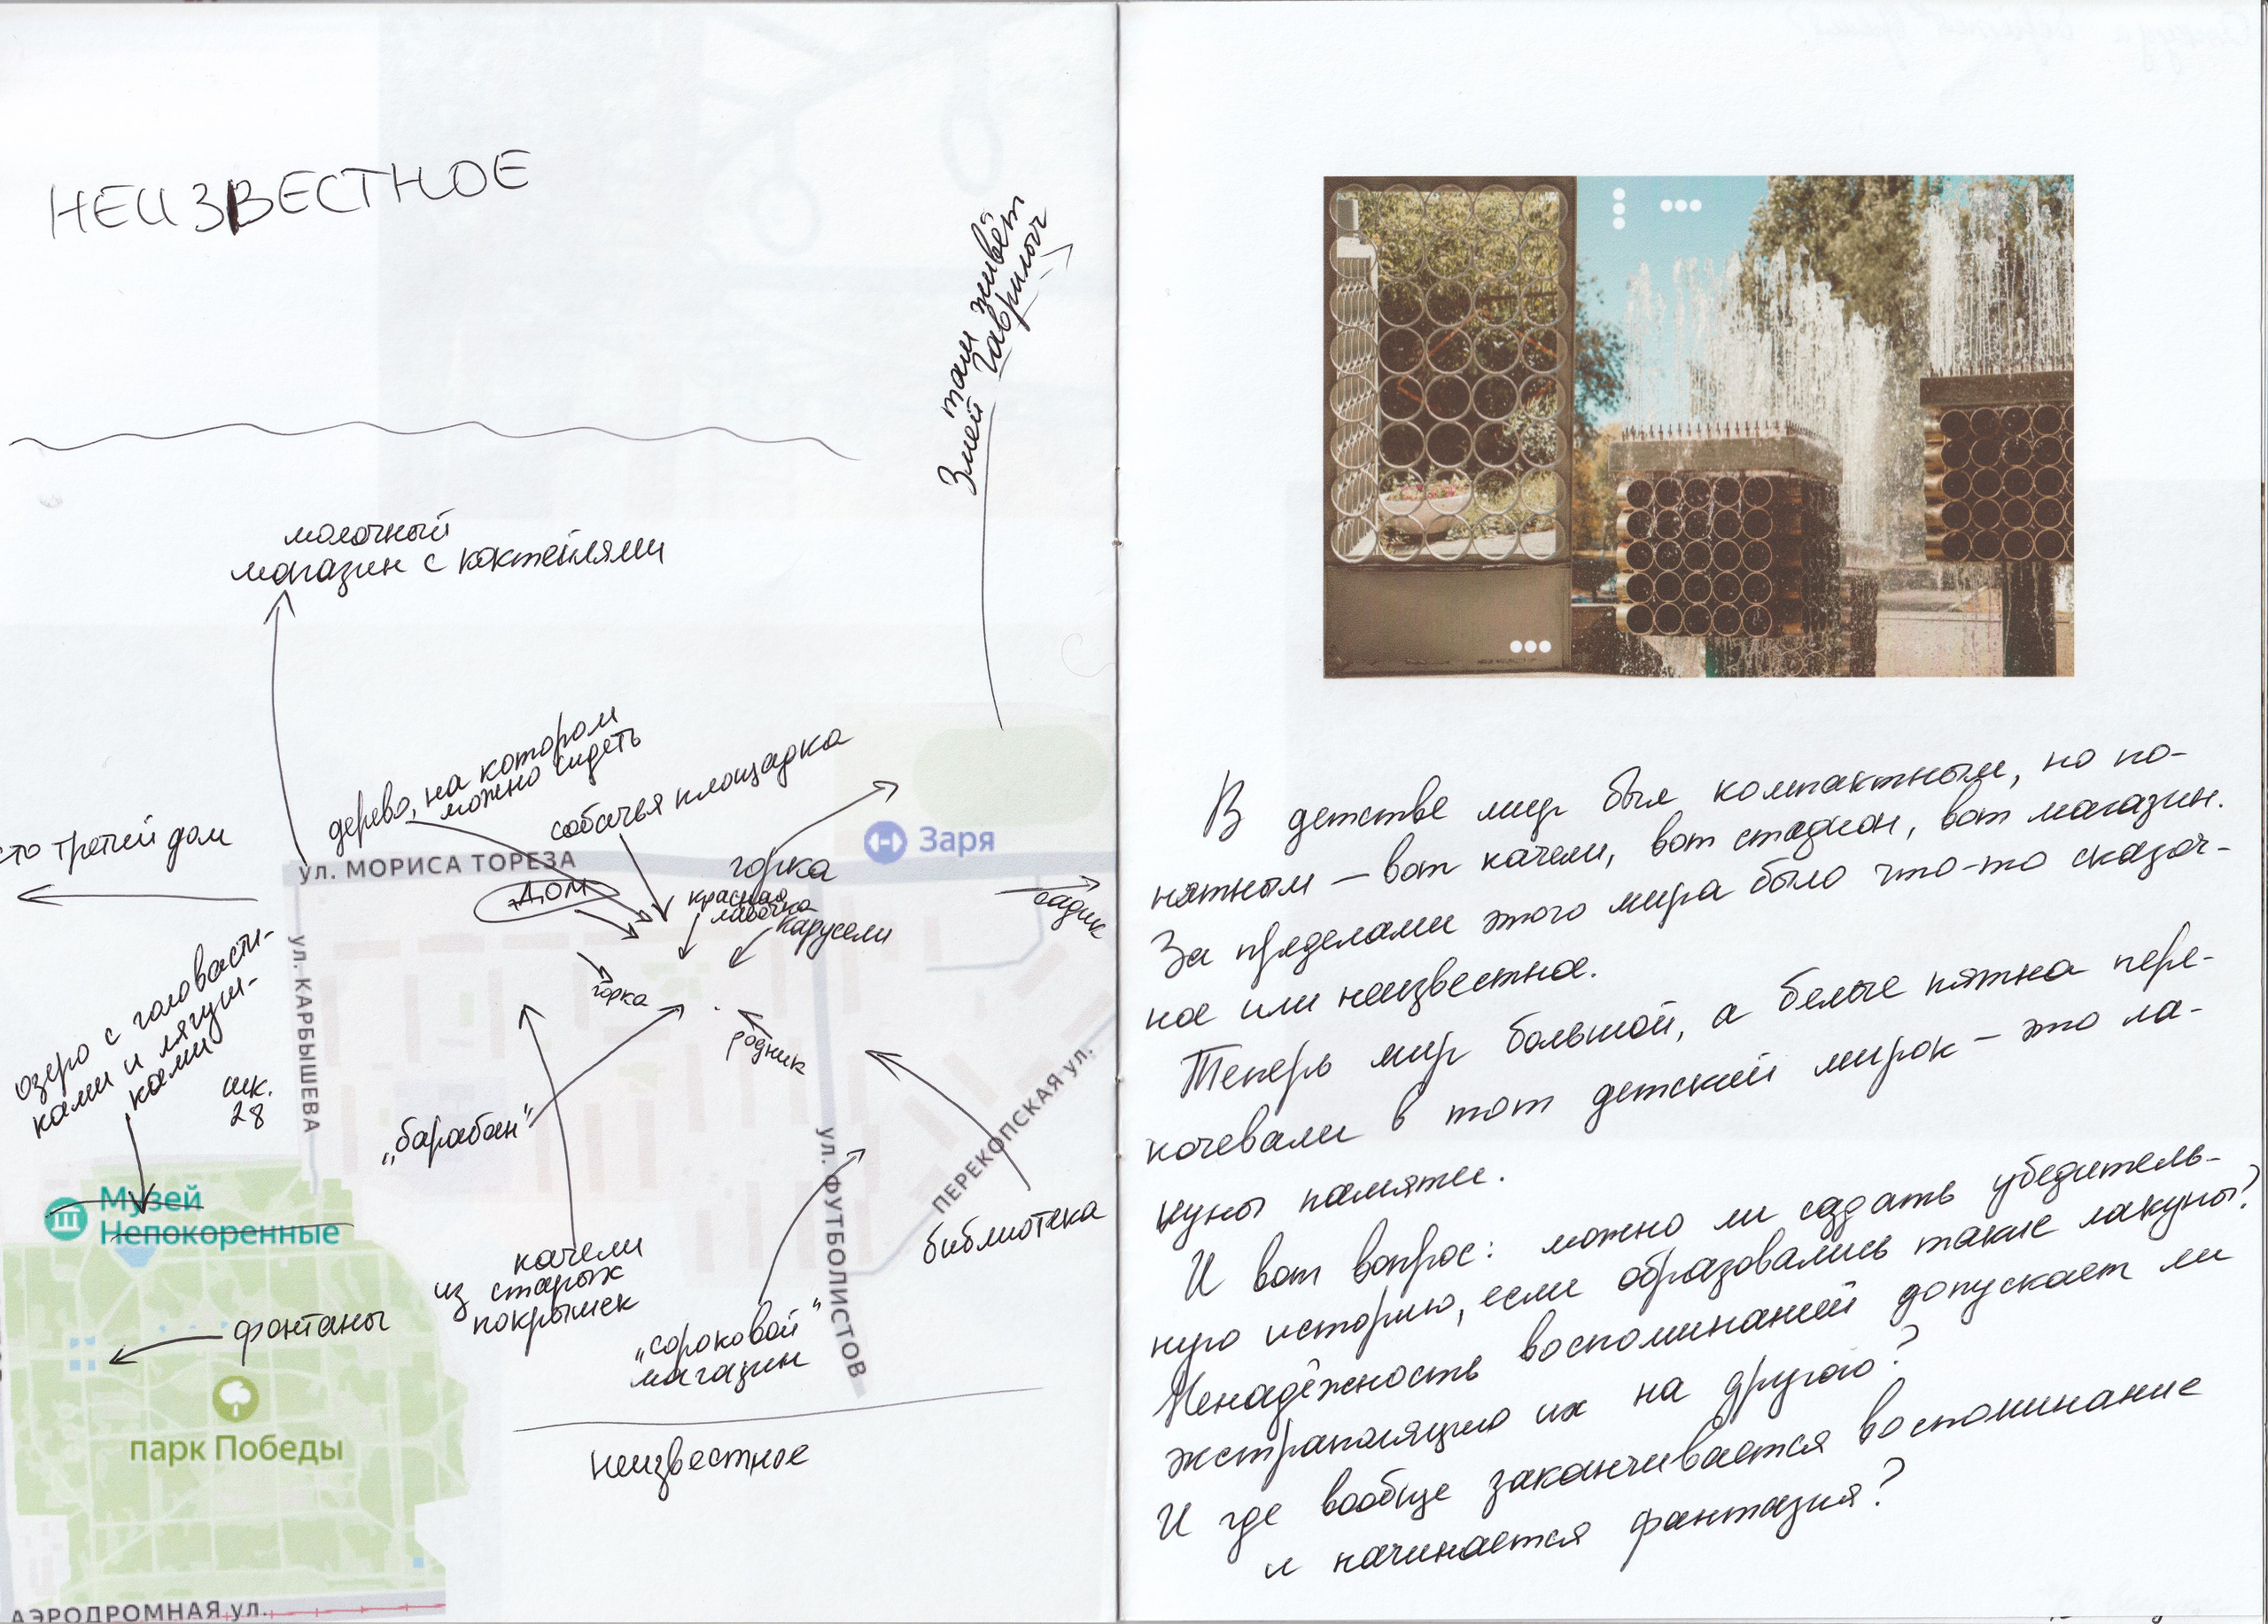 НЕИЗВЕСТНОЕ
там живёт
Змей Гаврилыч
молочный
магазин с коктейлями
дерево, на котором
можно сидеть
собачья площадка
Заря
сто третий дом
ул. МОРИСА ТОРЕЗА
горка
ДОМ
красная
лавочка
карусели
садик
ул. КАРБЫШЕВА
озеро с головасти-
ками и лягуш-
ками
горка
родник
шк.
28
„барабан"
ПЕРЕКОПСКАЯ ул.
ул. ФУТБОЛИСТОВ
Музей
Непокоренные
библиотека
качели
из старых
покрышек
фонтаны
„сороковой"
магазин
парк Победы
неизвестное
АЭРОДРОМНАЯ ул.
В детстве мир был компактным, но по-
нятным – вот качели, вот стадион, вот магазин.
За пределами этого мира было что-то сказоч-
ное или неизвестное.
Теперь мир большой, а белые пятна пере-
кочевали в тот детский мирок – это ла-
куны памяти.
И вот вопрос: можно ли создать убедитель-
ную историю, если образовались такие лакуны?
Ненадёжность воспоминаний допускает ли
экстраполяцию их на другого?
И где вообще заканчивается воспоминание
и начинается фантазия?